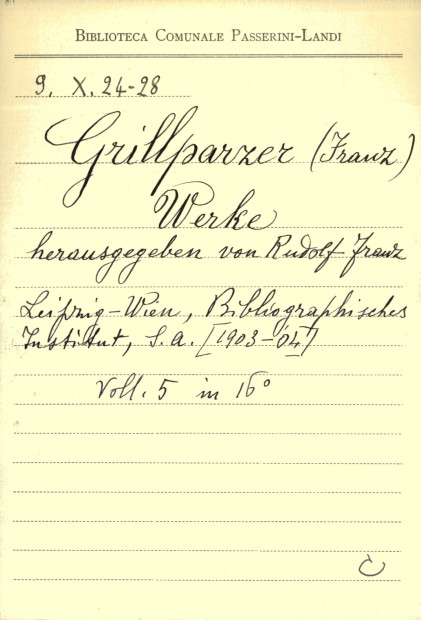 BIBLIOTECA COMUNALE PASSERINI-LANDI
9. X. 24-28
Grillparzer (Franz)
Werke
herausgegeben von Rudolf Franz
Leipzig-Wien, Bibliographisches
Institut, s.a. [1903-'04]
Voll. 5 in 16°